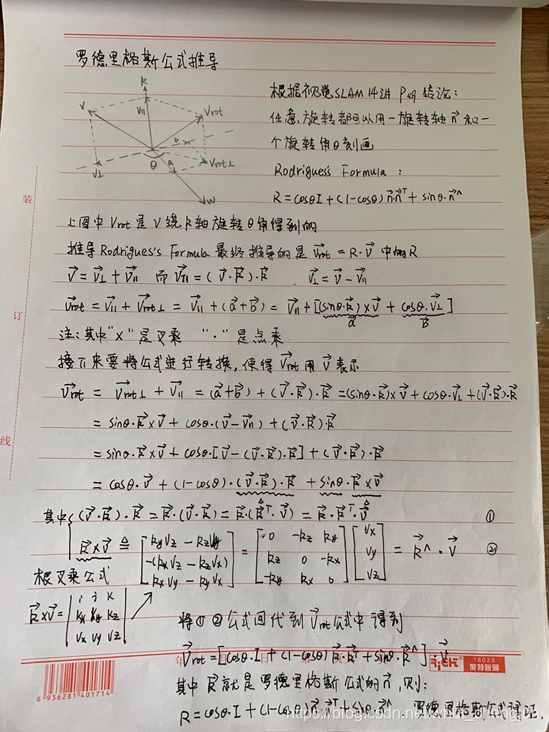 罗德里格斯公式推导
根据视觉SLAM14讲 P49 结论:
任意旋转都可以用一旋转轴 n⃗ 和一
个旋转角θ刻画
Rodrigues's Formula:
R = cosθI + (1-cosθ) n⃗·n⃗ᵀ + sinθ·n⃗^
k⃗
V
V∥
Vrot
b
V⊥
θ
a
Vrot⊥
W
上图中Vrot是V绕k⃗轴旋转θ角得到的
推导Rodrigues's Formula 最终推导的是 V⃗rot = R·V⃗ 中的R
V⃗ = V⃗⊥ + V⃗∥ 而 V⃗∥ = (V⃗·k⃗)·k⃗ , V⃗⊥ = V⃗ - V⃗∥
V⃗rot = V⃗∥ + V⃗rot⊥ = V⃗∥ + (a⃗+b⃗) = V⃗∥ + [(sinθ·k⃗)×V⃗ + cosθ·V⃗⊥]
a⃗ b⃗
注: 其中"×"是叉乘 "·"是点乘
接下来要将公式进行转换, 使得 V⃗rot 用 V⃗ 表示
V⃗rot = V⃗rot⊥ + V⃗∥ = (a⃗+b⃗) + (V⃗·k⃗)·k⃗ = (sinθ·k⃗)×V⃗ + cosθ·V⃗⊥ + (V⃗·k⃗)·k⃗
= sinθ·k⃗×V⃗ + cosθ·(V⃗-V⃗∥) + (V⃗·k⃗)·k⃗
= sinθ·k⃗×V⃗ + cosθ·[V⃗-(V⃗·k⃗)·k⃗] + (V⃗·k⃗)·k⃗
= cosθ·V⃗ + (1-cosθ)·(V⃗·k⃗)·k⃗ + sinθ·k⃗×V⃗
其中 { (V⃗·k⃗)·k⃗ = k⃗·(V⃗·k⃗) = k⃗·(k⃗ᵀ·V⃗) = k⃗·k⃗ᵀ·V⃗ ①
k⃗×V⃗ ≜ [kyVz - kzVy; -(kxVz - kzVx); kxVy - kyVx] = [0 -kz ky; kz 0 -kx; -ky kx 0] [Vx; Vy; Vz] = k⃗^·V⃗ ②
根叉乘公式
k⃗×V⃗ = |i j k; kx ky kz; Vx Vy Vz|
将①②公式回代到V⃗rot公式中得到
V⃗rot = [cosθ·I + (1-cosθ) k⃗·k⃗ᵀ + sinθ·k⃗^]·V⃗
其中k⃗就是罗德里格斯公式的n⃗, 则:
R = cosθ·I + (1-cosθ) n⃗·n⃗ᵀ + sinθ·n⃗^ 罗德里格斯公式得证.
装
订
线
年 月 日
16028
英特账簿
6936281401714